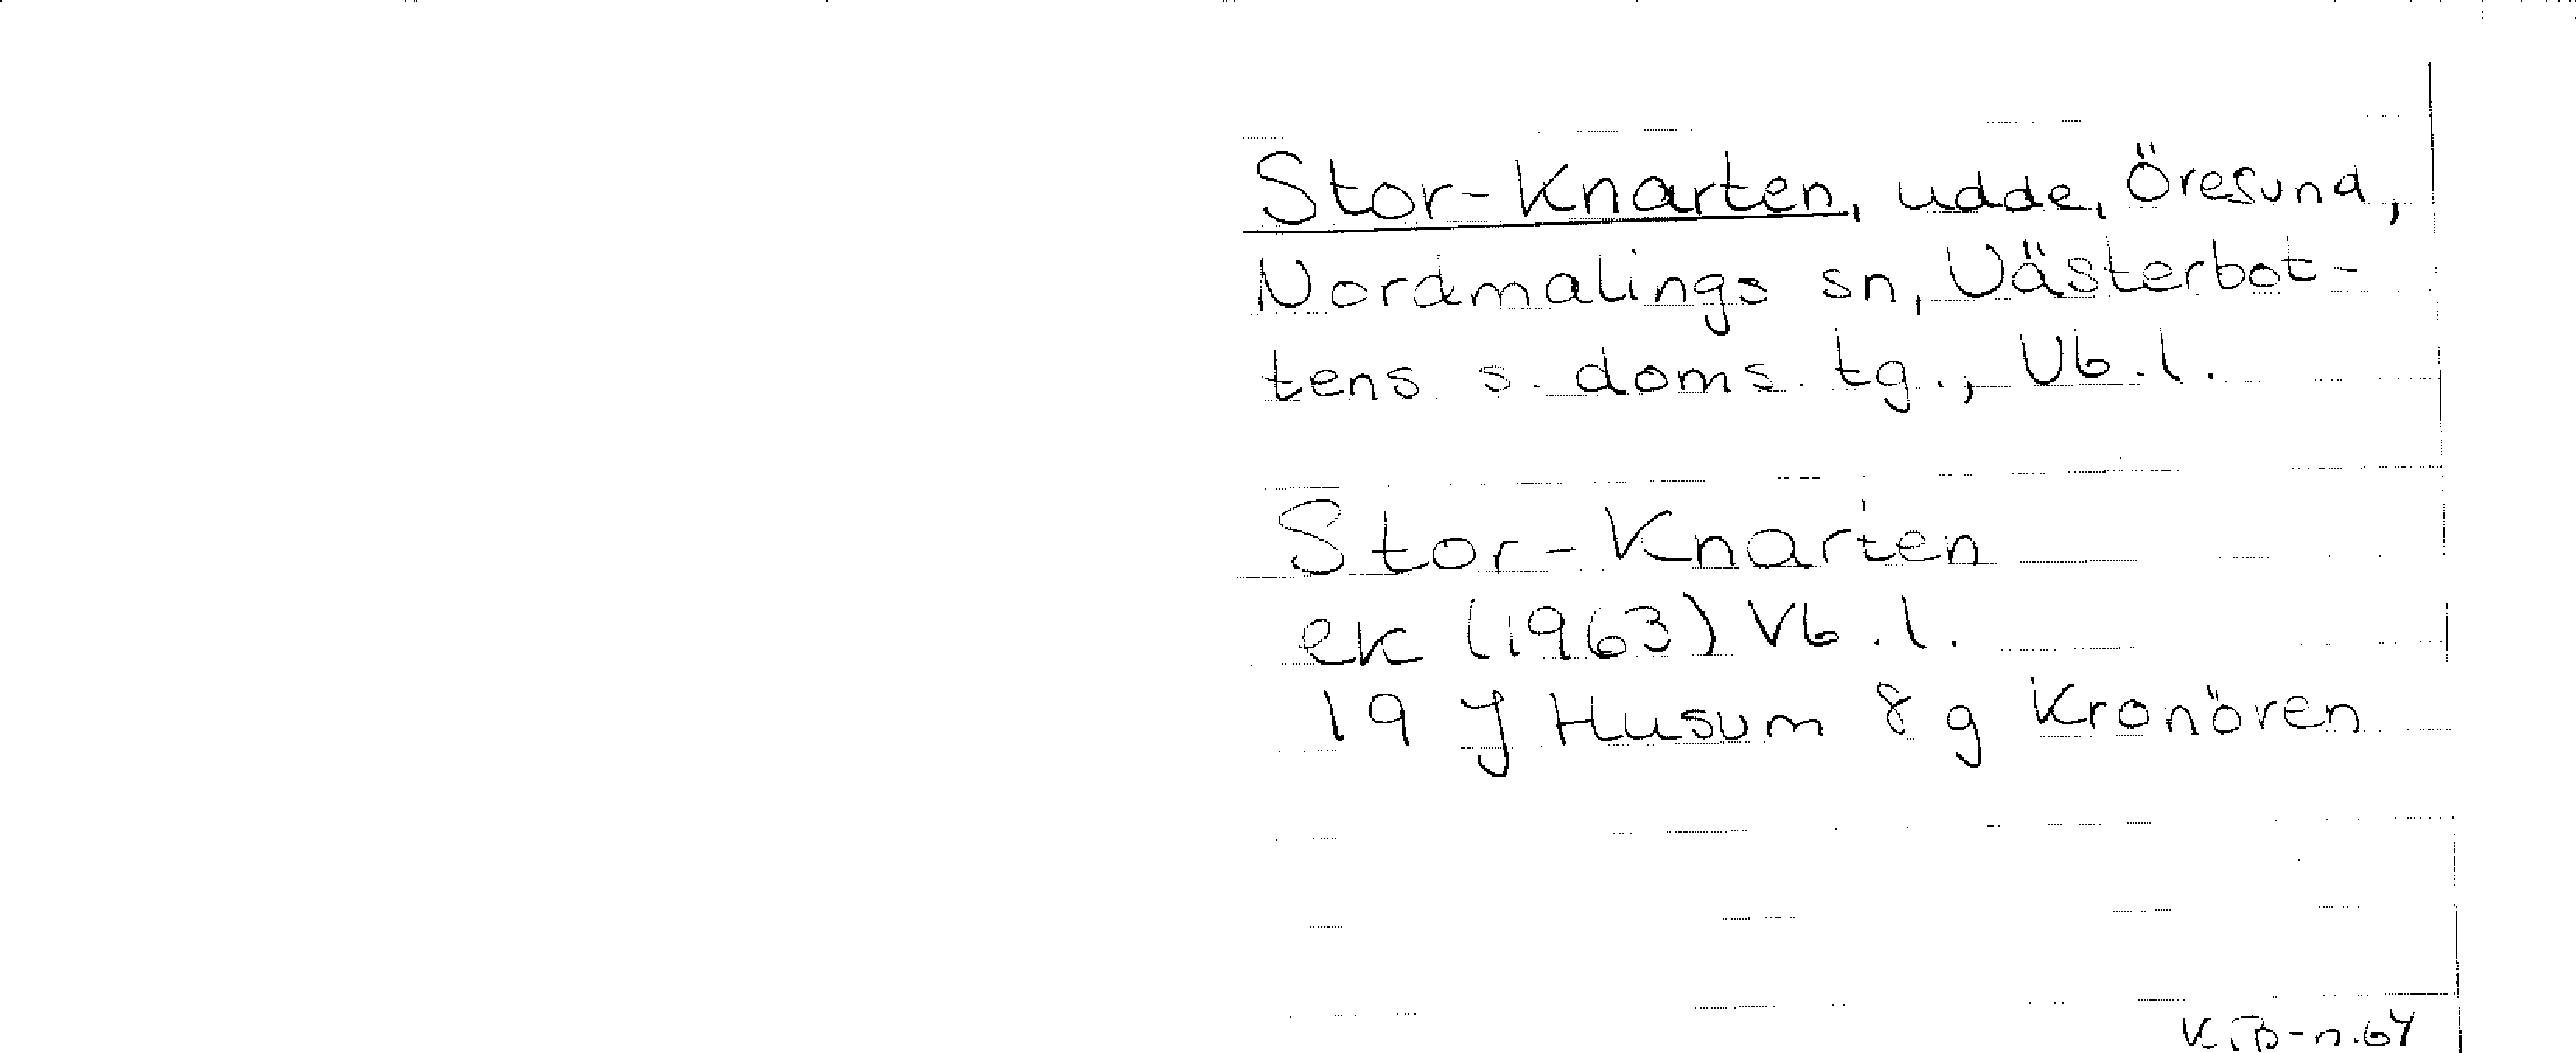 Stor-Knarten, udde, Öresund,
Nordmalings sn, Västerbot-
tens s. doms. tg., Vb.l.
Stor-Knarten
ek (1963) Vb.l.
19 J Husum 8 g Kronören
K.B-n.64